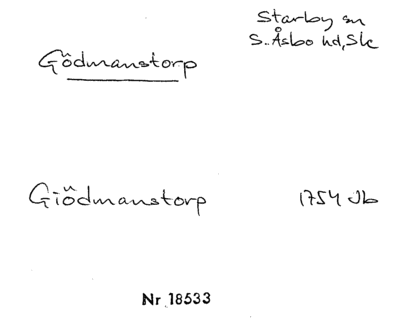 Starby sn
S. Åsbo hd, Sk
Gödmanstorp
Giödmanstorp
1754 Jb
Nr 18533